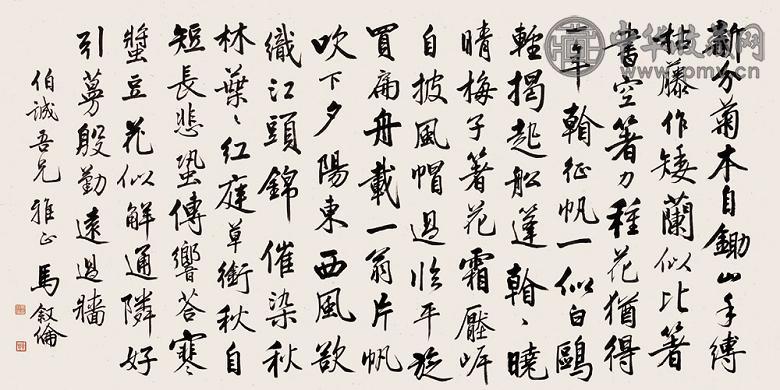 新分菊本自鋤山手縛
枯藤作矮蘭似比著
書空著力種花猶得
一年看征帆一似白鷗
輕揭起船篷看〻曉
晴梅子著花霜壓岸
自披風帽過臨平旋
買扁舟載一翁片帆
吹下夕陽東西風欲
織江頭錦催染秋
林葉〻紅庭草銜秋自
短長悲蛩傳響答寒
螿豆花似解通隣好
引蔓殷勤遠過牆
伯誠吾兄雅正 馬叙倫
中华收藏网